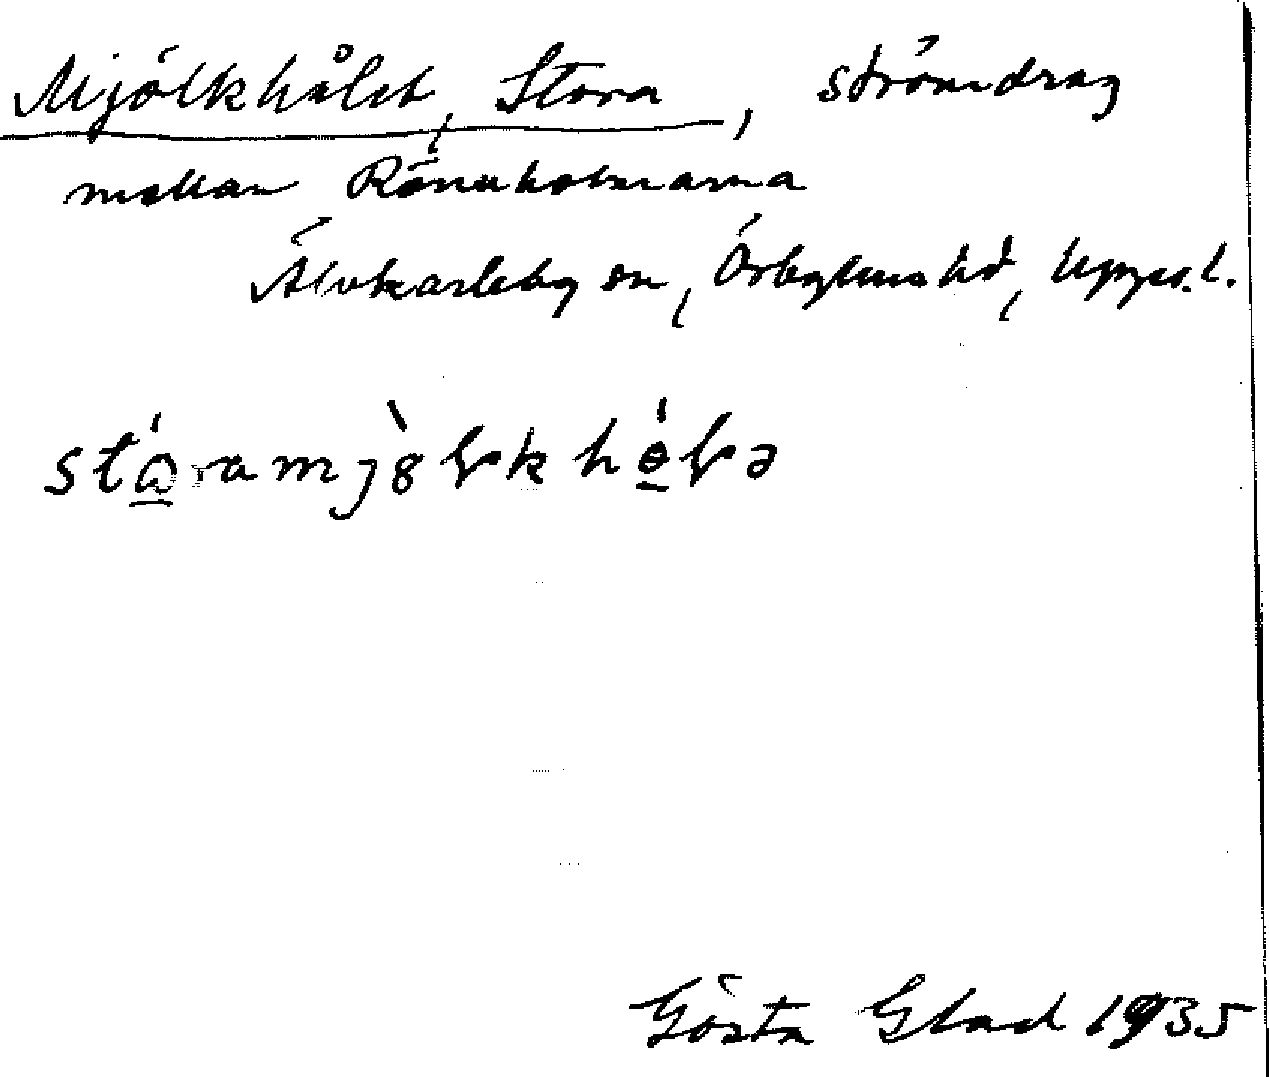 Mjölkhålet, Stora, strömdrag
mellan Rönnholmarna
Älvkarleby sn, Örbyhus hd, Upps. l.
Gösta Glad 1935